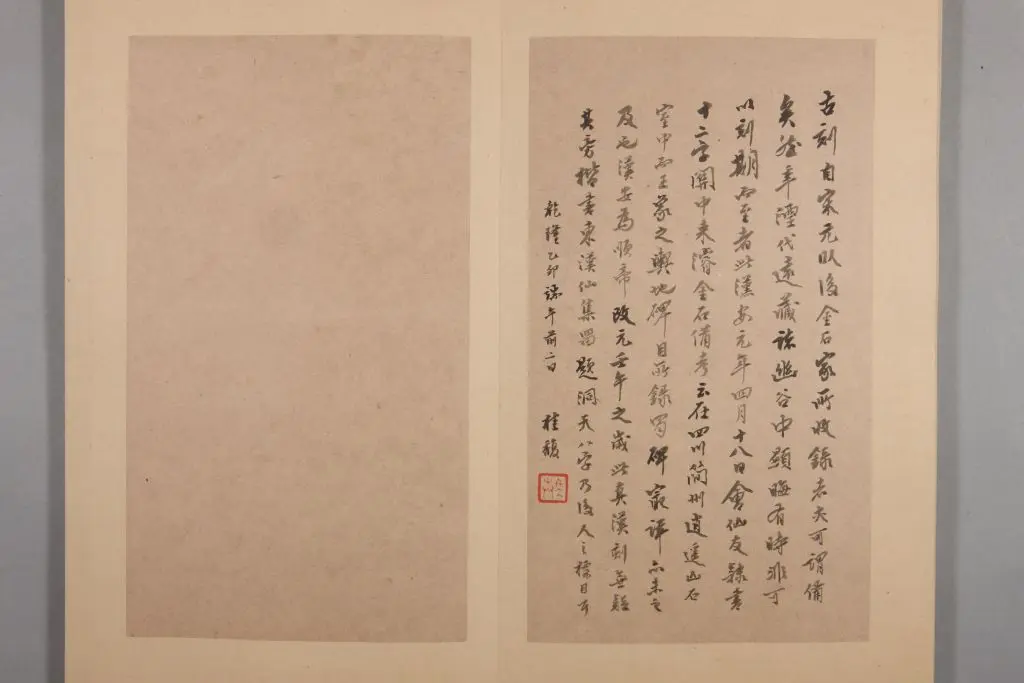 古刻自宋元以後金石家所收錄者夫可謂備
矣然年湮代遠藏諸幽谷中顯晦有時非可
以刻期而至者此漢安元年四月十八日會仙友隸書
十二字關中來濬金石備考云在四川簡州逍遙山石
室中而王象之輿地碑目所錄蜀碑最詳亦未之
及也漢安為順帝改元壬午之歲此真漢刻無疑
其旁楷書東漢仙集留題洞天八字乃後人之標目耳
乾隆乙卯端午前二日 桂馥